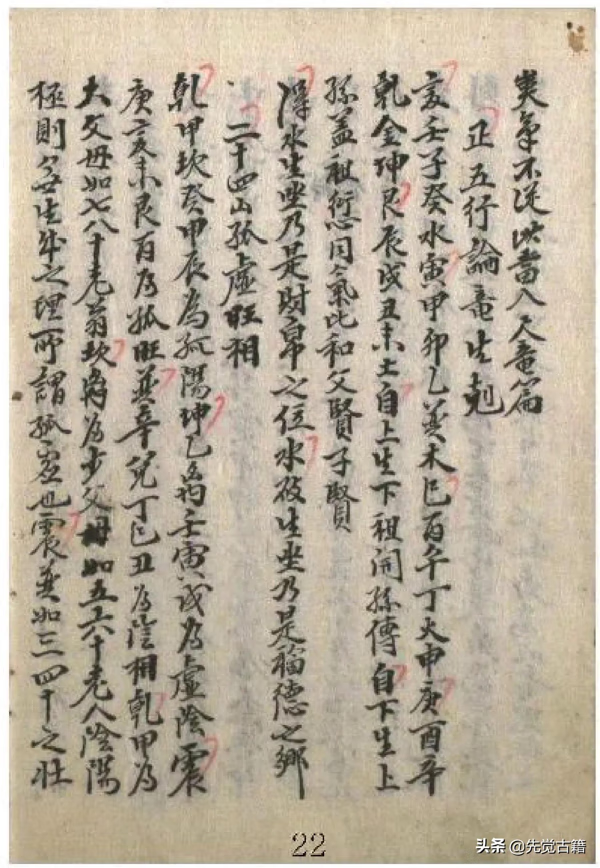 巽氣不從此當入天竜篇
正五行論竜生剋
亥壬子癸水寅甲卯乙巽木巳丙午丁火申庚酉辛
乾金坤艮辰戌丑未土自上生下祖開孫傳自下生上
孫盖祖愆同氣比和父賢子賢
浮水生坐乃是財帛之位水生坐乃是福德之鄉
二十四山孤虛旺相
乾甲坎癸申辰為孤陽坤乙离壬寅戌為虛陰震
庚亥未艮丙為孤旺巽辛兌丁巳丑為陰相乾甲為
大父母如七八十老翁坎离為少父母如五六十老人陰陽
極則無生成之理所謂孤虛也震巽如三四十之壯
22
头条 @先觉古籍